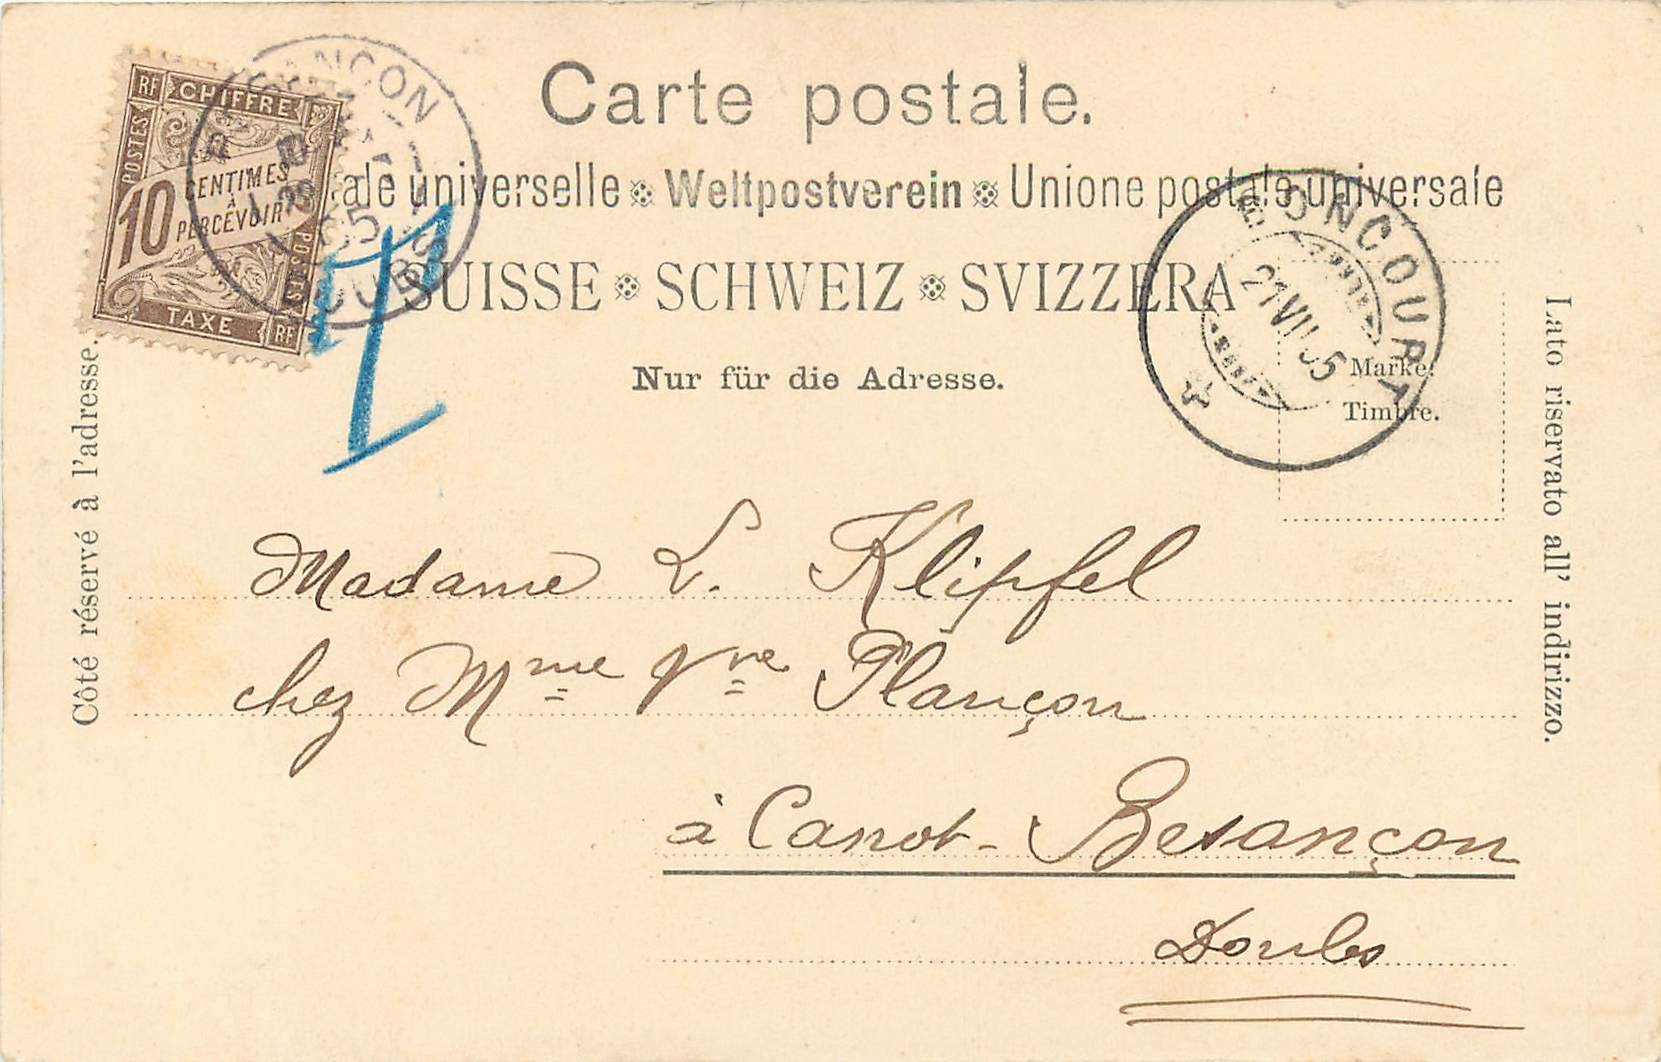 Carte postale.
ale universelle Weltpostverein Unione postale universale
SUISSE SCHWEIZ SVIZZERA
Nur für die Adresse.
Côté réservé à l'adresse.
Lato riservato all' indirizzo.
Marke.
Timbre.
RF CHIFFRE
POSTES
10 CENTIMES
À
PERCEVOIR
POSTES
TAXE RF
BONCOURT
21 VII 05
DOUBS
T
Madame L. Klipfel
chez Mme Vve Plançon
à Canot - Besançon
Doubs